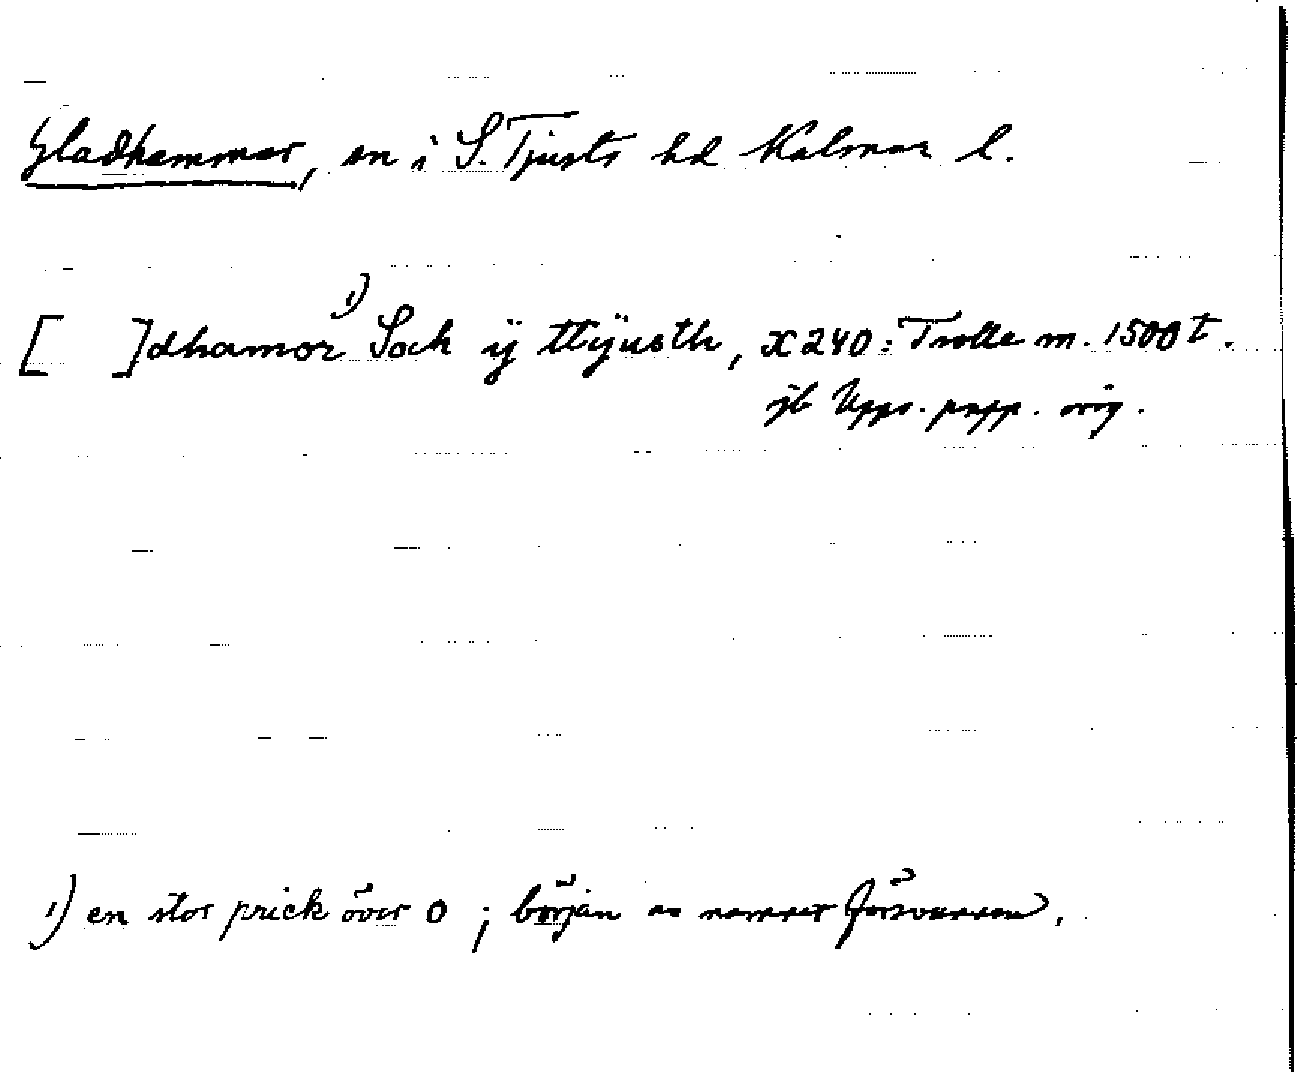 Gladhammar, sn i S. Tjusts hd Kalmar l.
[ ]dhamor 1) Sock ÿ ttÿusth, X 240: Trolle m. 1500 t.
jb Upps. papp. orig.
1) en stor prick över o ; början av namnet försvunnen.